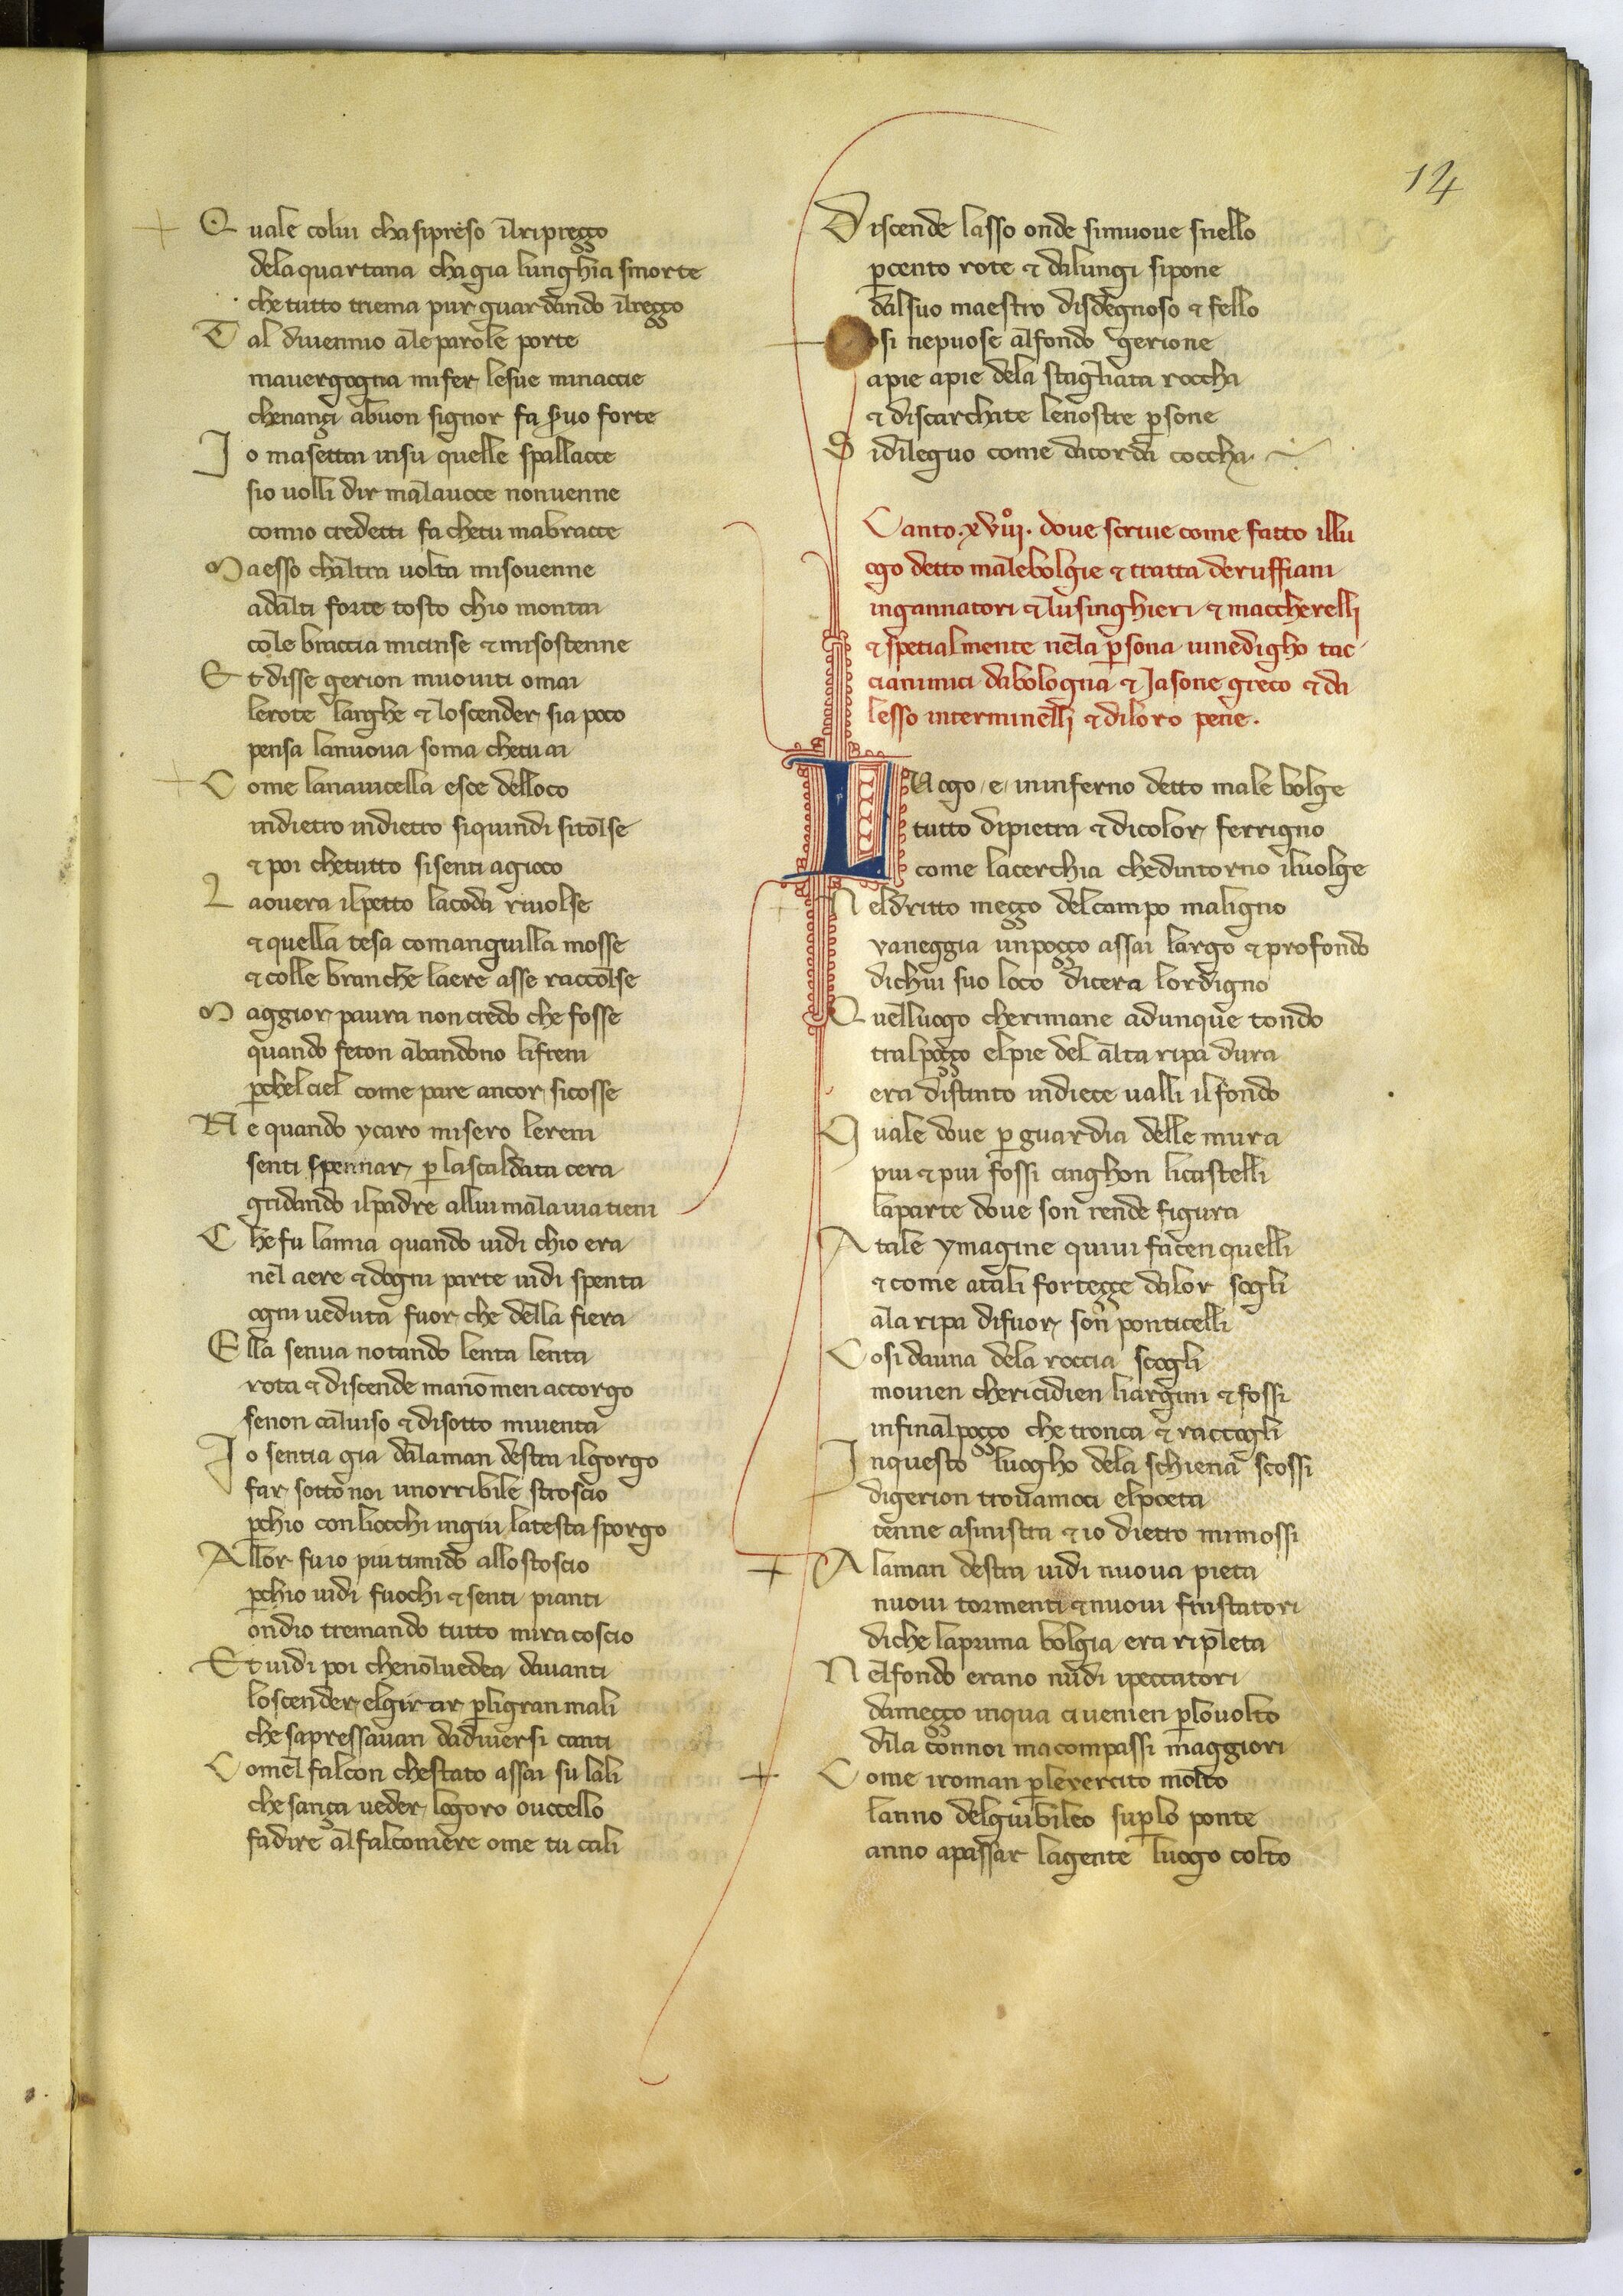 14
Quale colui cha sipreso ilripreççο
delaquartana chagia lunghia smorte
che tutto triema pur guardando ilreçço
Tal diuennio ale parole porte
mauergogna mifer lesue minacce
chenançi abuon signor fa seruo forte
Io masettai insu quelle spallacce
sio uolli dir malauoce nonuenne
comio credetti fa chetu mabracce
Maesso chaltra uolta misouenne
adalti forte tosto chio montai
cole braccia micinse & misostenne
Et disse gerion muouiti omai
lerote larghe & loscender sia poco
pensa lanuoua soma chetu ai
Come lanauicella esce delloco
indietro indietro siquindi sitolse
& poi chetutto sisenti agioco
Laouera ilpetto lacoda riuolse
& quella tesa comanguilla mosse
& colle branche laere asse raccolse
Maggior paura non credo che fosse
quando feton abandono lifreni
pchel ciel come pare ancor sicosse
Ne quando ycaro misero lereni
senti spennar p lascaldata cera
gridando ilpadre allui mala uia tieni
Che fu lamia quando uidi chio era
nel aere & dogni parte uidi spenta
ogni ueduta fuor che della fiera
Ella senua notando lenta lenta
rota & discende manōmen accorgo
senon caluiso & disotto miuenta
Io sentia gia dalaman destra ilgorgo
far sotto noi unorribile stroscio
pchio conliocchi ingiu latesta sporgo
Allor fuio piu timido alloscoscio
pchio uidi fuochi & senti pianti
ondio tremando tutto miracoscio
Et uidi poi chenoluedea dauanti
loscender elgirar pligran mali
che sapressauan dadiuersi canti
Comel falcon chestato assai su lali
che sança ueder logoro ouccello
fadire alfalconiere ome tu cali
Discende lasso onde simuoue snello
pcento rote & dalungi sipone
dalsuo maestro disdegnoso & fello
osi nepuose alfondo gerione
apie apie dela stagliata roccha
& discarchate lenostre psone
Sidileguo come dacorda coccha
Canto .xviii. doue scriue come fatto illu
ogo detto malebolgie & tratta deruffiani
ingannatori & lusinghieri & maccherelli
& spetialmente nela psona uinedigho cac
cianimici dabologna & Jasone greco & da
lesso interminelli & diloro pene.
LUogo e ininferno detto male bolge
tutto dipietra & dicolor ferrigno
come lacerchia chedintorno iluolge
Neldritto meçço delcampo maligno
vaneggia unpoçço assai largo & profondo
dichui suo loco dicera lordigno
Quelluogo cherimane adunque tondo
tralpoçço elpie del alta ripa dura
era distinto indiece ualli ilfondo
Quale doue p guardia delle mura
piu & piu fossi cinghon licastelli
laparte doue son rende figura
Atale ymagine quiui facen quelli
& come atali forteççe dalor sogli
ala ripa difuor son ponticelli
Cosi dauna dela roccia scogli
mouien chericidien liargini & fossi
infinalpoçço che tronca & raccogli
Inquesto luogho dela schiena scossi
digerion trouamoci elpoeta
tenne asinistra & io dietro mimossi
Alaman destra uidi nuoua pieta
nuoui tormenti & nuoui frustatori
diche laprima bolgia era ripleta
Nelfondo erano nudi ipeccatori
dameçço inqua ciuenien plouolto
dila connoi macompassi maggiori
Come iroman plexercito molto
lanno delgiubileo suplo ponte
anno apassar lagente luogo colto